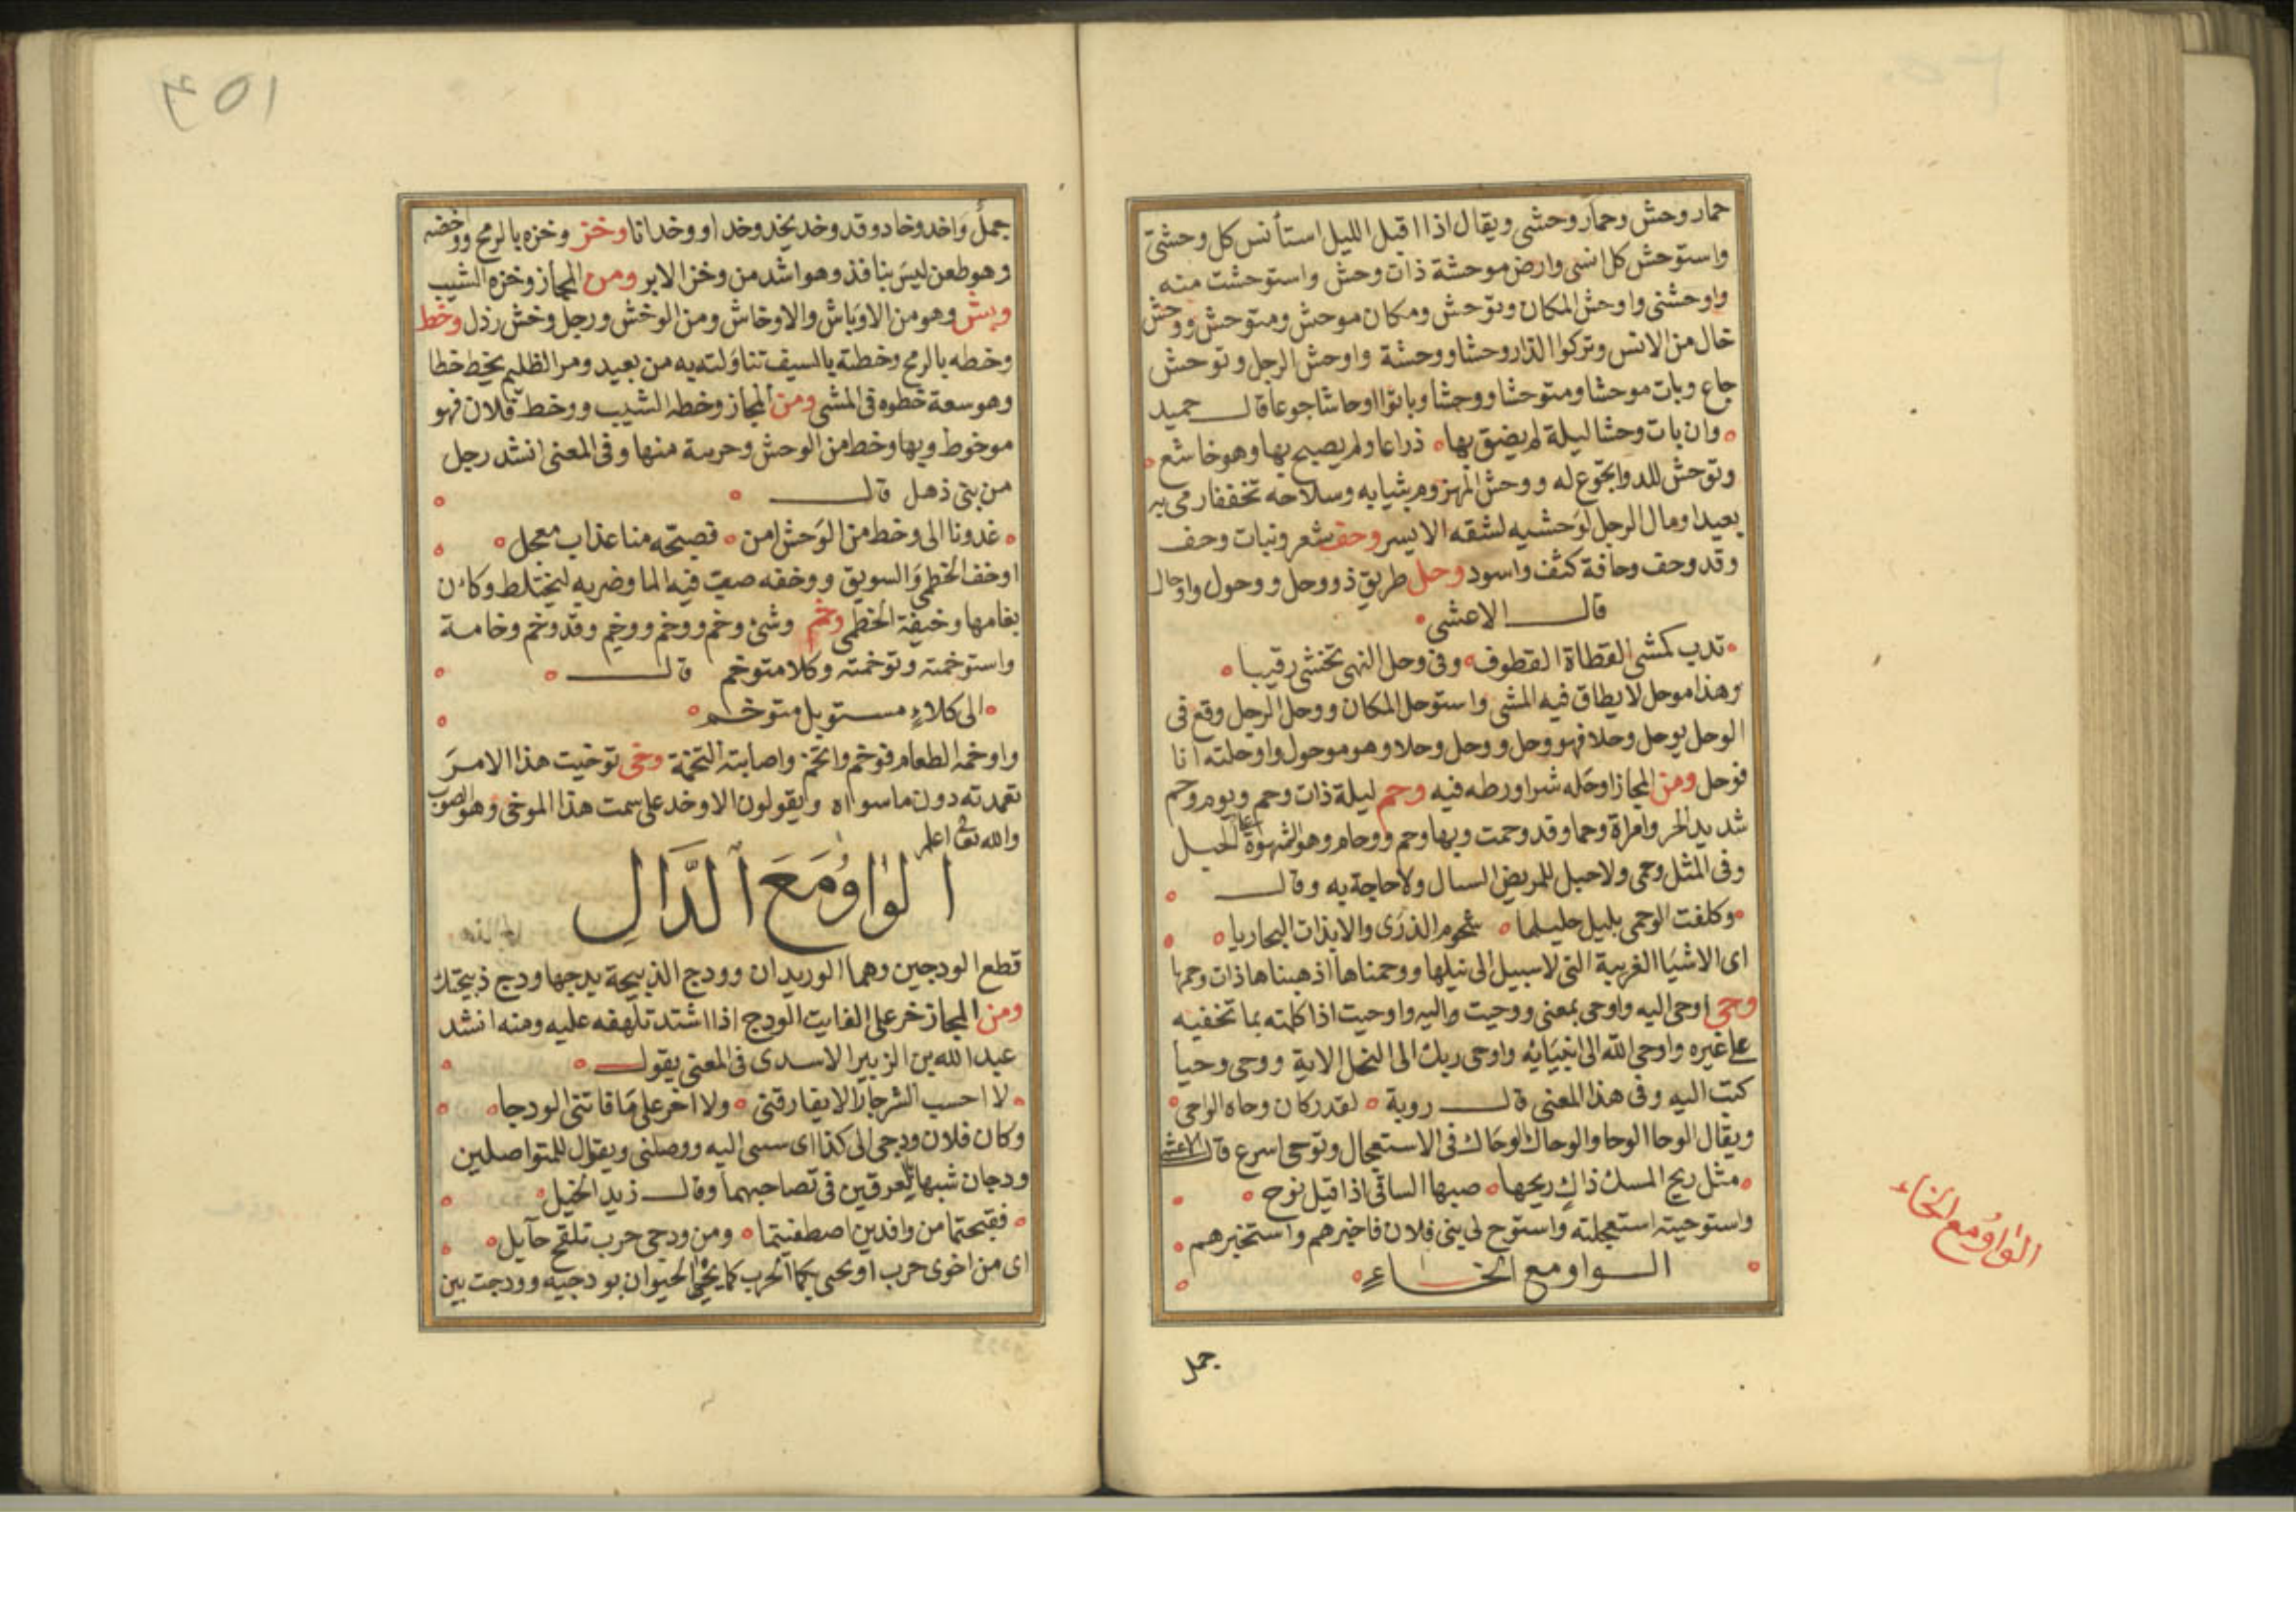 حمار وحش وحمار وحشى ويقال اذا اقبل الليل استأنس كل وحشى
واستوحش كل انسى وارض موحشة ذات وحش واستوحشت منه
واوحشنى واوحش المكان وتوحش ومكان موحش ومتوحش ووحش
خال من الانس وتركوا الدار وحشا ووحشة واوحش الرجل وتوحش
جاع وبات موحشا ومتوحشا ووحشا وباتوا اوحاشا جوعا قال حميد
وان بات وحشا ليلة لم يضق بها ذراعا ولم يصبح بها وهو خاشع
وتوحش للدوا تجوع له ووحش المهزوم بثيابه وسلاحه تخففا رمى به
بعيدا ومال الرجل لوحشيه لشقه الايسر وحف شعر ونبات وحف
وقد وحف وحافة كثف واسود وحل طريق ذو وحل ووحول واوحال
قال الاعشى
تدب كمشى القطاة القطوف وفى وحل النهى تخشى رقيبا
وهذا موحل لا يطاق فيه المشى واستوحل المكان ووحل الرجل وقع فى
الوحل يوحل وحلا فهو وحل ووحل وحلا وهو موحول واوحلته انا
فوحل ومن المجاز اوحله شرا ورطه فيه وحم ليلة ذات وحم ويوم وحم
شديد الحر وامراة وحما وقد وحمت وبها وحم ووحام وهو الشهوة على الحبل
وفى المثل وحمى ولا حبل للمريض السال ولا حاجة به وقال
وكلفت الوحمى بليل حليلها شحوم الذرى والابذات البحاريا
اى الاشيا الغريبة التى لا سبيل الى نيلها ووحمناها اذهبناها ذات وحمها
وحى اوحى اليه واوحى بمعنى ووحيت واليه واوحيت اذا كلمته بما تخفيه
على غيره واوحى الله الى انبيائه واوحى ربك الى النحل الاية ووحى وحيا
كتب اليه وفى هذا المعنى قال روبة لقدر كان وحاه الواحى
ويقال الوحا الوحا والوحاك الوحاك فى الاستعجال وتوحى اسرع قال الاعشى
مثل ريح المسك ذاك ريحها صبها الساقى اذا قيل نوح
واستوحيته استعجلته واستوح لى بنى فلان فاخبرهم واستخبرهم
الواو مع الخاء
الواو مع الخاء
جمل
جمل واخد وخاد وقد وخد يخد وخدا ووخدانا وخز وخزه بالرمح ووخضه
وهو طعن ليس بنافذ وهو اشد من وخز الابر ومن المجاز وخزه الشيب
وبش وهو من الاوباش والاوخاش ومن الوخش ورجل وخش رذل وخط
وخطه بالرمح وخطته بالسيف تناولته به من بعيد ومر الظليم يخط خطا
وهو سعة خطوه فى المشى ومن المجاز وخطه الشيب ووخط فلان فهو
موخوط وبها وخط من الوحش وحربة منها وفى المعنى انشد رجل
من بنى ذهل قال
غدونا الى وخط من الوحش امن فصبحه منا عذاب معجل
اوخف الخطمى والسويق ووخفه صب فيه الما وضربه ليختلط وكان
بغامها وخيفة الخطمى وخم وشى وخم ووخم ووخيم وقد وخم وخامة
واستوخمته وتوخمته وكلا متوخم قال
الى كلاء مستوبل متوخم
واوخمه الطعام فوخم واتخم واصابته التخمة وخى توخيت هذا الامر
تعمدته دون ما سواه ويقولون الا وخد على سمت هذا الموخى وهو الصوب
والله تعالى اعلم
الواو مع الدال
قطع الودجين وهما الوريدان وودج الذبيحة يدجها ودج ذبيحتك
ومن المجاز خر على الفايت الودج اذا اشتد تلهفه عليه ومنه انشد
عبد الله بن الزبير الاسدى فى المعنى يقول
لا احسب الشر جارا لا يفارقنى ولا اخر على ما فاتنى الودجا
وكان فلان ودجى الى كذا اى سببى اليه ووصلنى ويقال للمتواصلين
ودجان شبها بالعرقين فى تصاحبهما وقال زيد الخيل
فقبحتما من وافدين اصطفيتما ومن ودجى حرب تلقح حآيل
اى من اخوى حرب او يحيى بكما الحرب كما يحيى الحيوان بودجيه وودجت بين